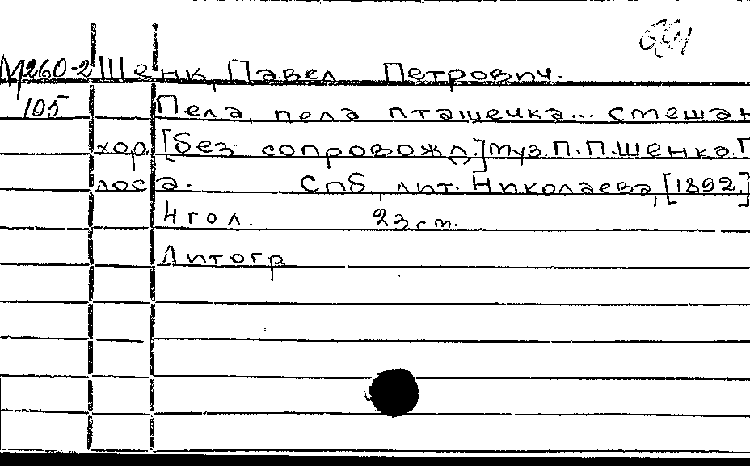 М260-2 Шенк, Павел Петрович.
105 Пела, пела пташечка... смешан
хор [без сопровожд.] муз. П.П.Шенка. Г
лоса. СПб, лит. Николаева, [1892]
4 гол. 23 см.
Литогр